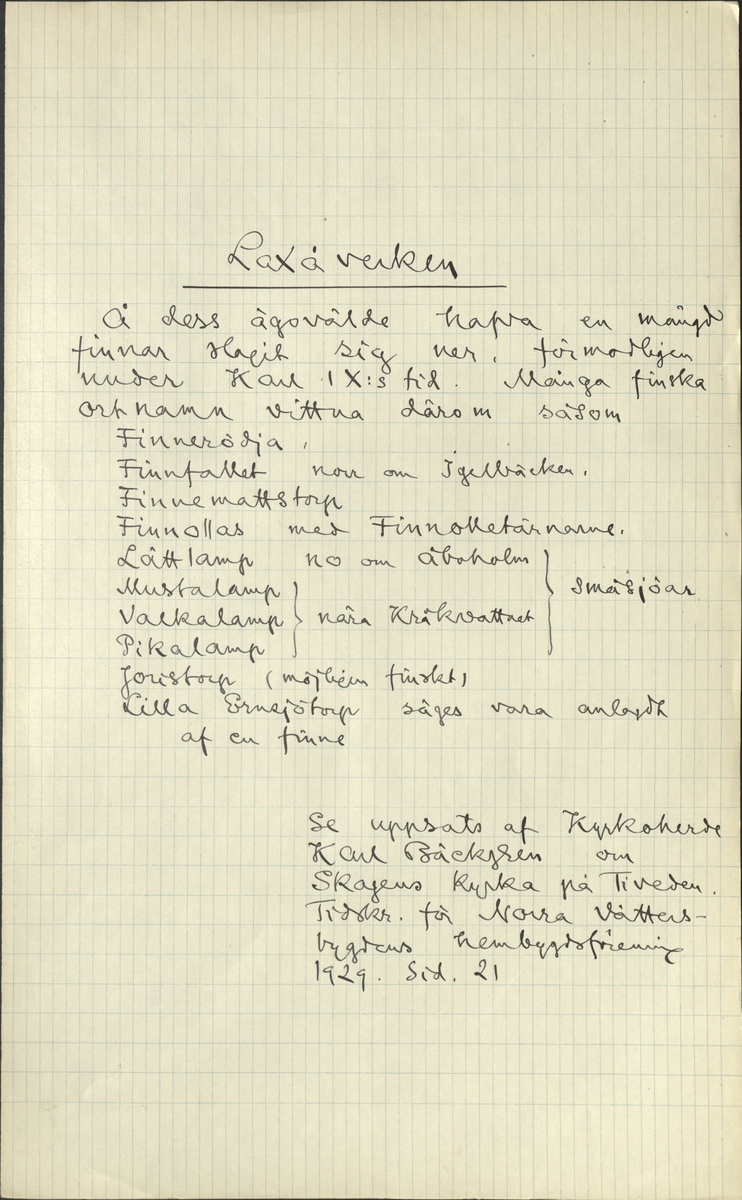 Laxå verken
Å dess ägovälde hafva en mängd
finnar slagit sig ner, förmodligen
under Karl IX:s tid. Många finska
ortnamn vittna därom såsom
Finnerödja,
Finnfallet norr om Igelbäcken.
Finnemattstorp
Finnollas med Finnolletärnarne.
Lättlamp no om Åboholm
Mustalamp
Valkalamp } nära Kräkvattnet } småsjöar
Pikalamp
Joristorp (möjligen finskt)
Lilla Ernsjötorp säges vara anlagdt
af en finne
Se uppsats af Kyrkoherde
Karl Bäckgren om
Skagens kyrka på Tiveden.
Tidskr. för Norra Vätters-
bygdens hembygdsförening
1929. Sid. 21